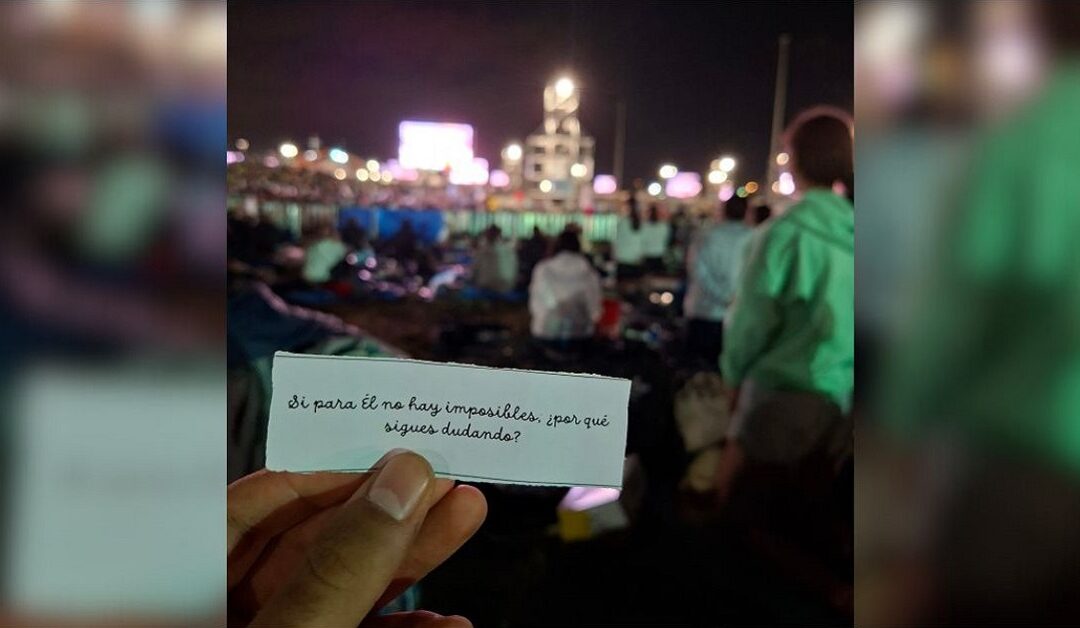 Si para Él no hay imposibles, ¿por qué
sigues dudando?